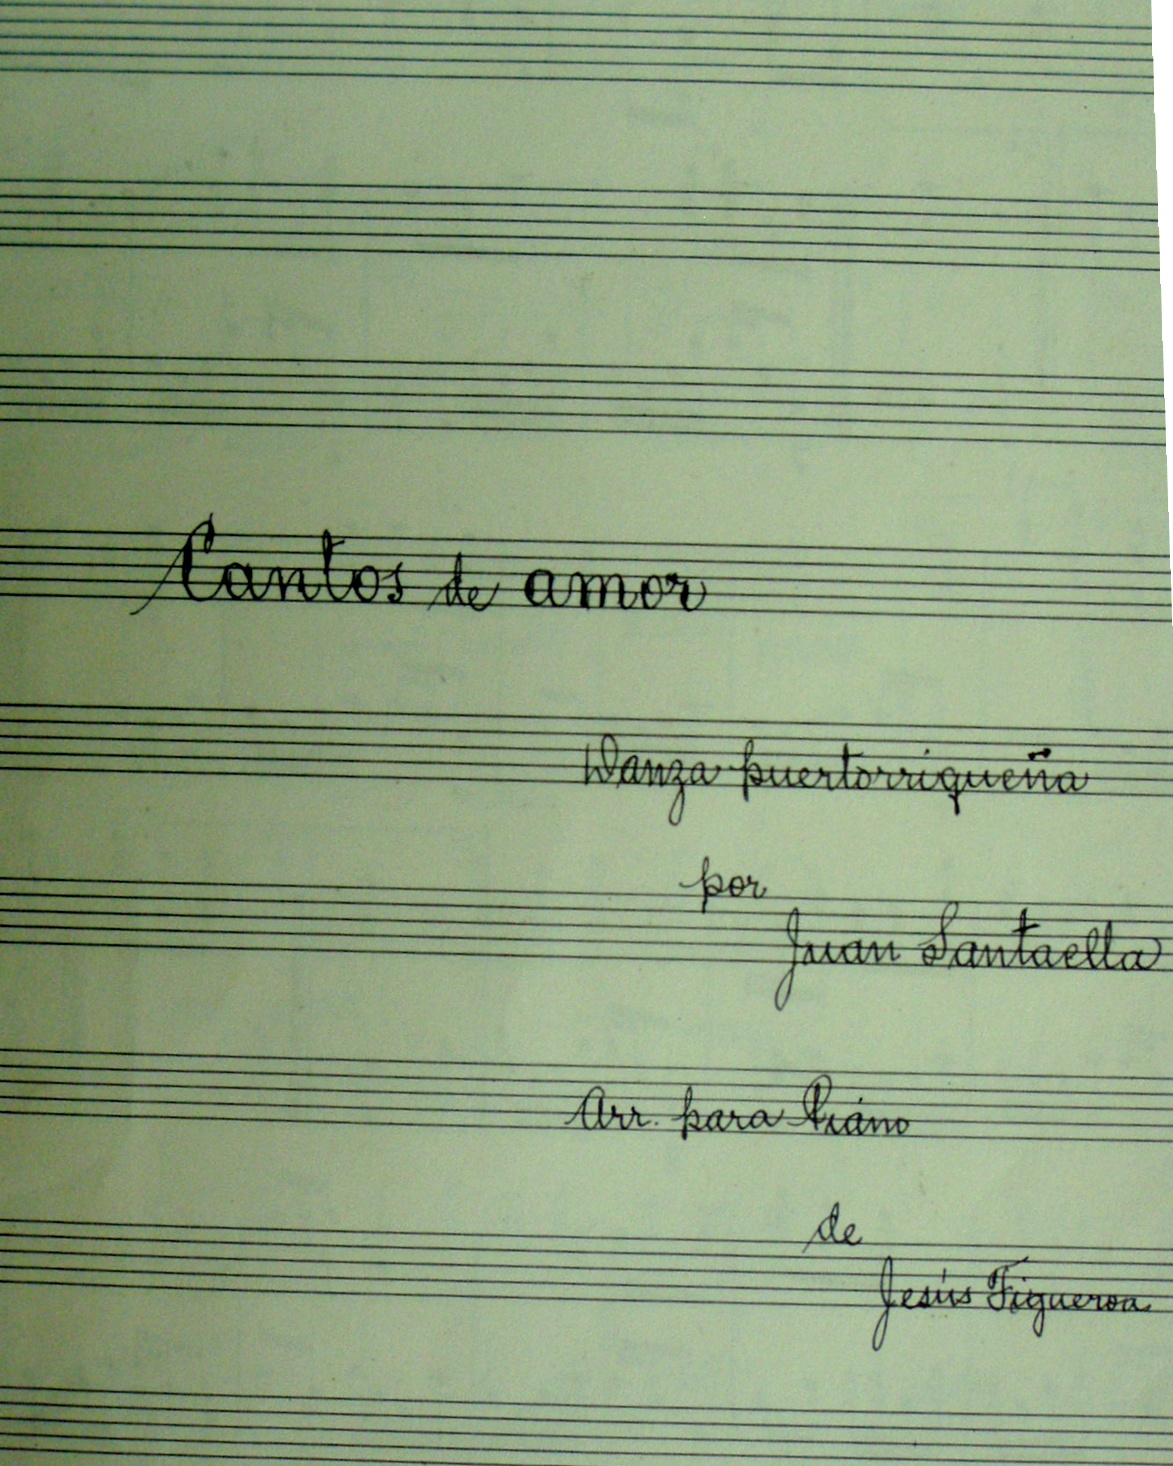 Cantos de amor
Danza puertorriqueña
por
Juan Santaella
Arr. para Piano
de
Jesús Figueroa